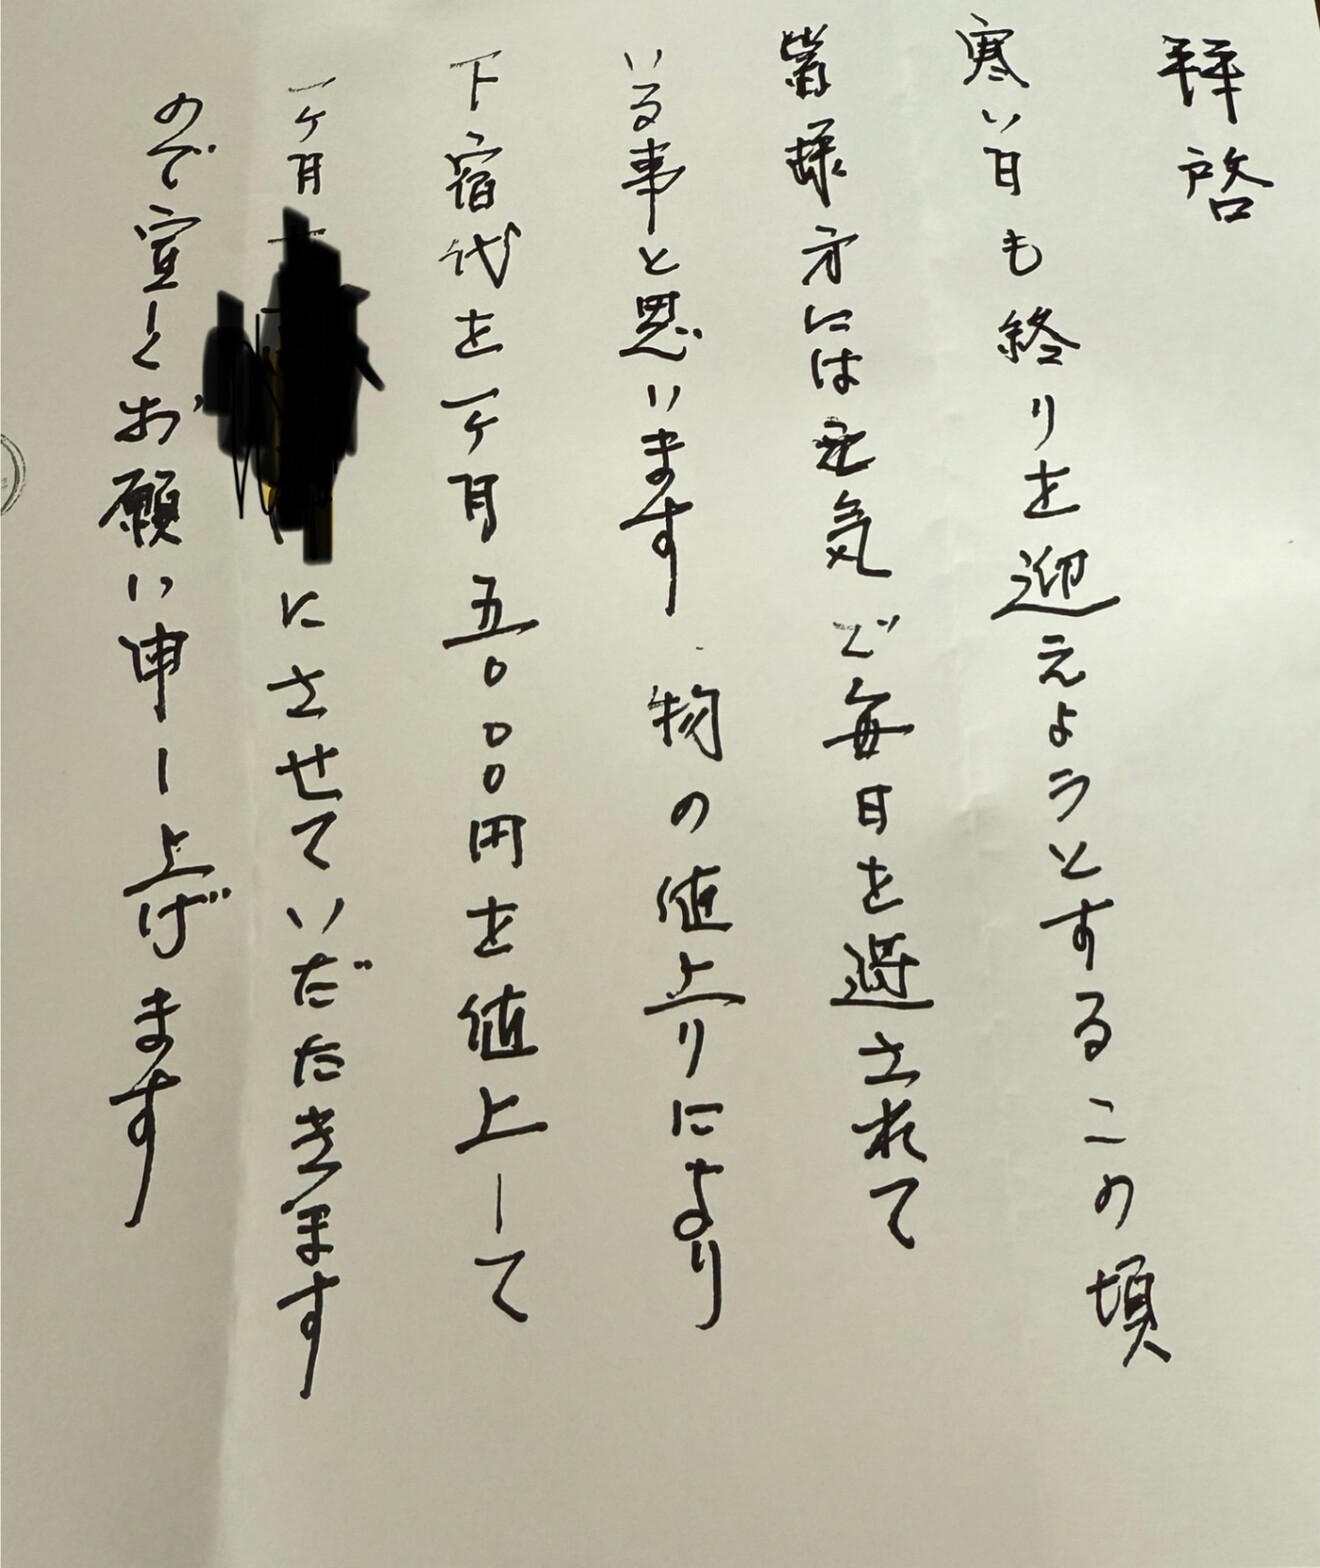 拝啓
寒い日も終りを迎えようとするこの頃
皆様方には元気で毎日を過されて
いる事と思います 物の値上りにより
下宿代を一ヶ月五〇〇〇円を値上して
一ヶ月 にさせていだたきます
ので宜しくお願い申し上げます